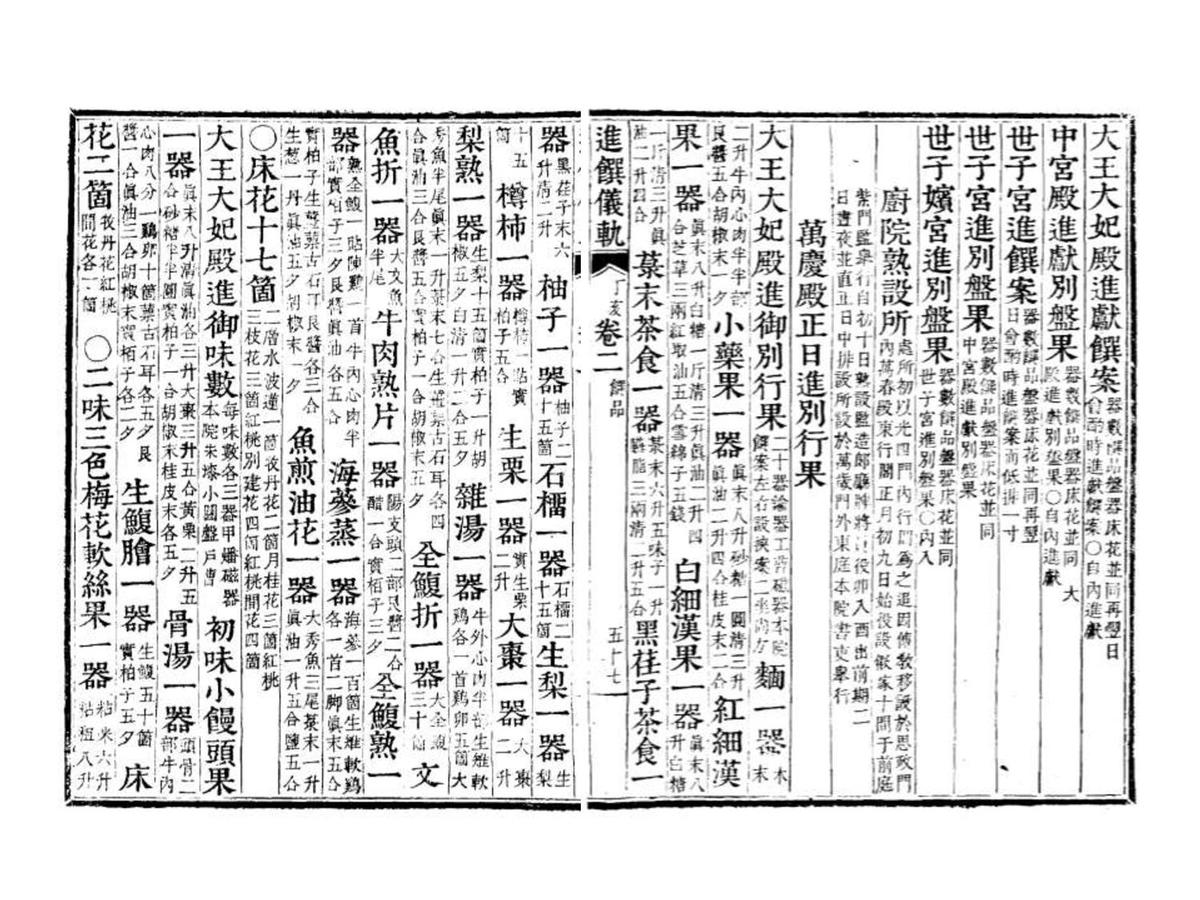 大王大妃殿進獻饌案 器數饌品盤器床花並同再翌日 會酌時進獻饌案○自內進獻
中宮殿進獻別盤果 器數饌品盤器床花並同 大 殿進獻別盤果○自內進獻
世子宮進饌案 器數饌品盤器床花並同再翌 日會酌時進饌案而低排一寸
世子宮進別盤果 器數饌品盤器床花並同 中宮殿進獻別盤果
世子嬪宮進別盤果 器數饌品盤器床花並同 世子宮進別盤果○內入
廚院熟設所 處所初以光四門內行閣爲之還因傳敎移設於思政門 內萬春殿東行閣正月初九日始役設假家十間于前庭
紫門監擧行自初十日熟設監造郞廳牌將 役卯入酉出前期二 日晝夜並直正日中排設所設於萬歲門外東庭本院書吏擧行
萬慶殿正日進別行果
大王大妃殿進御別行果 二十器鍮器工曹磁器本院 饌案左右設挾案二坐尙方 麵一器 木末
二升牛內心肉半半部 艮醬五合胡椒末一夕 小藥果一器 眞末八升砂糖一圓淸三升 眞油二升四合桂皮末二合 紅細漢
果一器 眞末八升白糖一斤淸三升眞油二升四 合芝草三兩紅取油五合雪綿子五錢 白細漢果一器 眞末八 升白糖
一斤淸三升眞 油二升四合 菉末茶食一器 菉末六升五味子一升 臙脂三兩淸一升五合 黑荏子茶食一
進饌儀軌 丁亥 卷二 饌品 五十七
器 黑荏子末六 升淸二升 柚子一器 柚子二 十五箇 石榴一器 石榴二 十五箇 生梨一器 生 梨
十五 箇 樽柿一器 樽柿一貼實 柏子五合 生栗一器 實生栗 二升 大棗一器 大棗 二升
梨熟一器 生梨十五箇實柏子一升胡 椒五夕白淸一升二合五夕 雜湯一器 牛外心肉半部生雉軟 鷄各一首鷄卵五箇大
秀魚半尾眞末一升菉末七合生薑菉古石耳各四 合眞油三合艮醬五合實柏子一合胡椒末五夕 全鰒折一器 大全鰒 三十箇 文
魚折一器 大文魚 半尾 牛肉熟片一器 陽支頭二部艮醬二合 醋一合實柏子三夕 全鰒熟一
器 熟全鰒一貼陳鷄一首牛內心肉半 部實柏子三夕艮醬眞油各五合 海蔘蒸一器 海蔘一百箇生雉軟鷄 各一首二脚眞末五合
實柏子生薑菉古石耳艮醬各三合 生葱一丹眞油五夕胡椒末一夕 魚煎油花一器 大秀魚三尾菉末一升 眞油一升五合鹽五合
○床花十七箇 二層水波蓮一箇牧丹花二箇月桂花三箇紅桃 三枝花三箇紅桃別建花四箇紅桃間花四箇
大王大妃殿進御味數 每味數各三器甲燔磁器 本院朱漆小圓盤戶曹 初味小饅頭果
一器 眞末八升淸眞油各三升大棗三升五合黃栗二升五 合砂糖半半圓實柏子一合胡椒末桂皮末各五夕 骨湯一器 頭骨二 部牛內
心肉八分一鷄卵十箇菉古石耳各五夕艮 醬一合眞油三合胡椒末實栢子各二夕 生鰒膾一器 生鰒五十箇 實柏子五夕 床
花二箇 牧丹花紅桃 間花各一箇 ○二味三色梅花軟絲果一器 粘米六升 粘租八升